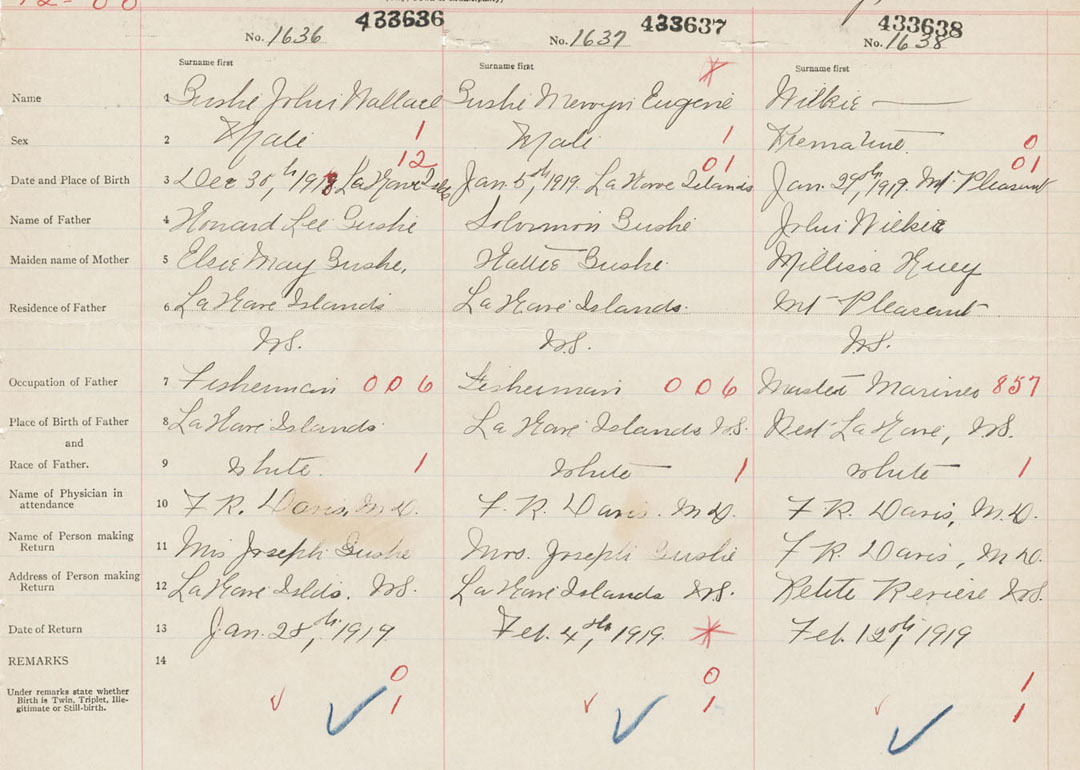 433636 433637 433638
No. 1636 No. 1637 No. 1638
Surname first Surname first Surname first
Name 1 Bushe John Wallace Bushe Mervyn Eugene Wilkie —
Sex 2 Male 1 Male 1 Premature. 0
12 01 01
Date and Place of Birth 3 Dec 30th, 1918 La Have Islds Jan. 5th, 1919. La Have Islands Jan. 29th, 1919. Mt Pleasant
Name of Father 4 Howard Lee Bushe Solomon Bushe John Wilkie
Maiden name of Mother 5 Elsie May Bushe. Hattie Bushe Millissa Huey
Residence of Father 6 La Have Islands La Have Islands Mt Pleasant
N.S. N.S. N.S.
Occupation of Father 7 Fisherman 006 Fisherman 006 Master Mariner 857
Place of Birth of Father 8 La Have Islands La Have Islands N.S. West La Have, N.S.
and
Race of Father. 9 White. 1 White 1 White 1
Name of Physician in
attendance 10 F. R. Davis, M.D. F. R. Davis. M.D. F. R. Davis, M.D.
Name of Person making
Return 11 Mrs Joseph Bushe Mrs. Joseph Bushe F. R. Davis, M.D.
Address of Person making
Return 12 La Have Islds. N.S. La Have Islands N.S. Petite Reviere N.S.
Date of Return 13 Jan. 28th, 1919 Feb. 4th, 1919. Feb. 12th, 1919
REMARKS 14
0 0 1
Under remarks state whether
Birth is Twin, Triplet, Ille-
gitimate or Still-birth. 1 1 1